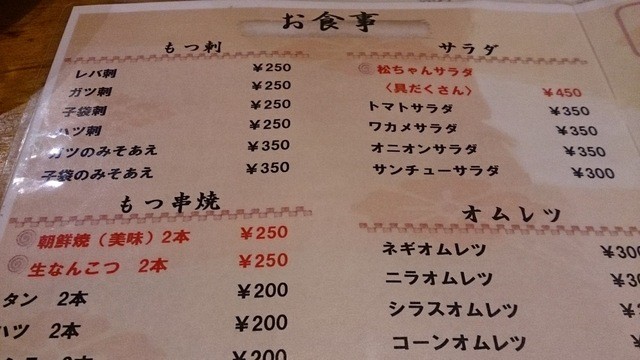 お食事
もつ刺
レバ刺 ¥250
ガツ刺 ¥250
子袋刺 ¥250
ハツ刺 ¥250
ガツのみそあえ ¥350
子袋のみそあえ ¥350
もつ串焼
朝鮮焼(美味)2本 ¥250
生なんこつ 2本 ¥250
タン 2本 ¥200
ハツ 2本 ¥200
2本 ¥200
サラダ
松ちゃんサラダ
〈具だくさん〉 ¥450
トマトサラダ ¥350
ワカメサラダ ¥350
オニオンサラダ ¥350
サンチューサラダ ¥300
オムレツ
ネギオムレツ ¥300
ニラオムレツ
シラスオムレツ
コーンオムレツ